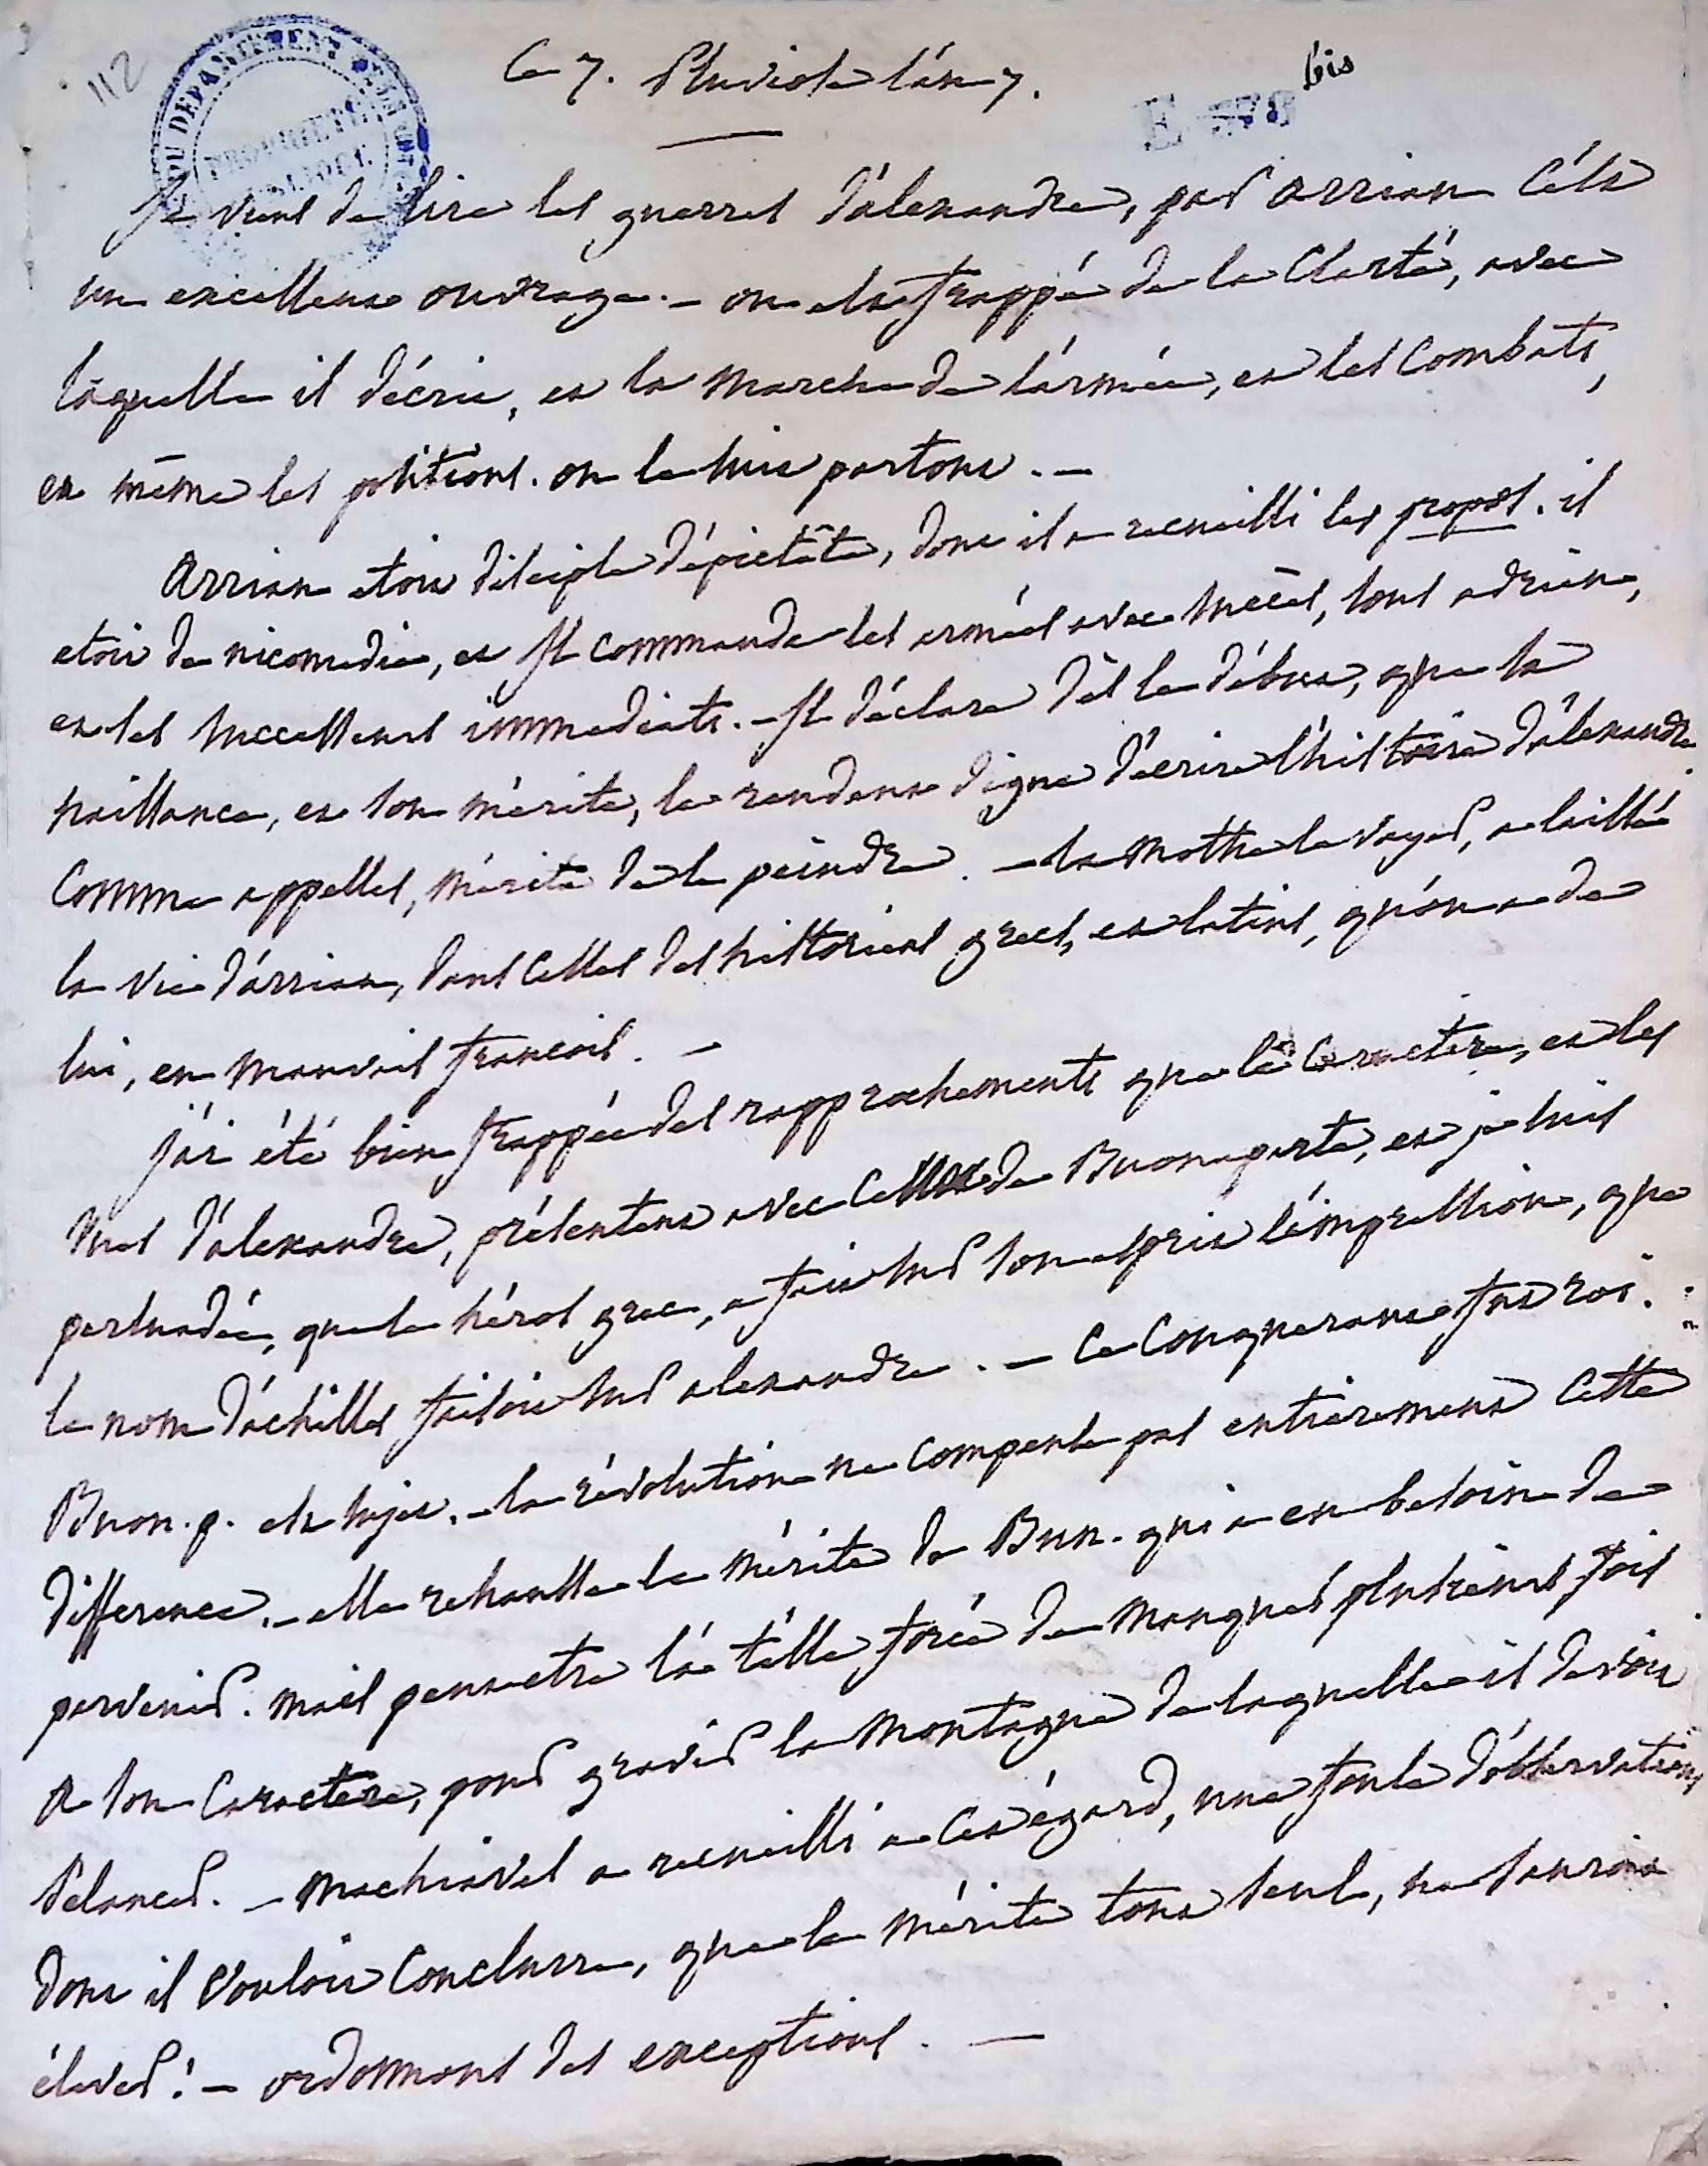 112
Ce 7. Pluviose l'an 7.
bis
DU DEPARTEMENT
PROPRIÉTÉ
PUBLIQUE
Je viens de lire les guerres d'alexandre, par arrian C'est
un excellent ouvrage. — on est frappé de la Clarté, avec
laquelle il décrit, et la marche de l'armée, et les Combats,
et même les positions. on le suit partout. —
Arrian etoit disciple d'épictète, dont il a recueilli les propos. il
etoit de nicomedie, et Il Commanda les armées avec succès, sous adrien,
et les successeurs immediats. — Il déclare dès le début, que sa
naissance, et son mérite, le rendent digne d'écrire l'histoire d'alexandre
Comme appelles, mérita de le peindre. — la mothe le vayer, a laissé
la vie d'arrian, dans Celles des historiens grecs, et latins, qu'on a de
lui, en mauvais francois. —
j'ai été bien frappée des rapprochements que le Caractère, et les
vues d'alexandre, présentent avec Celles de Buonaparte, et je suis
persuadée, que le héros grec, a fait sur son esprit l'impression, que
le nom d'achilles faisoit sur alexandre. — Ce Conquerant fut roi.
Buon. p. est sujet. — la révolution ne compense pas entièrement Cette
difference. — elle rehausse le mérite de Bun. qui a eu besoin de
parvenir. mais peut etre l'a t'elle forcé de manquer plusieurs fois
a son Caractère, pour gravir la montagne de laquelle il devoit
s'elancer. — machiavel a recueilli a Cet égard, une foule d'observations
dont il vouloit Conclurre, que le mérite tout seul, ne sauroit
élever! — ordonnons des exceptions. —